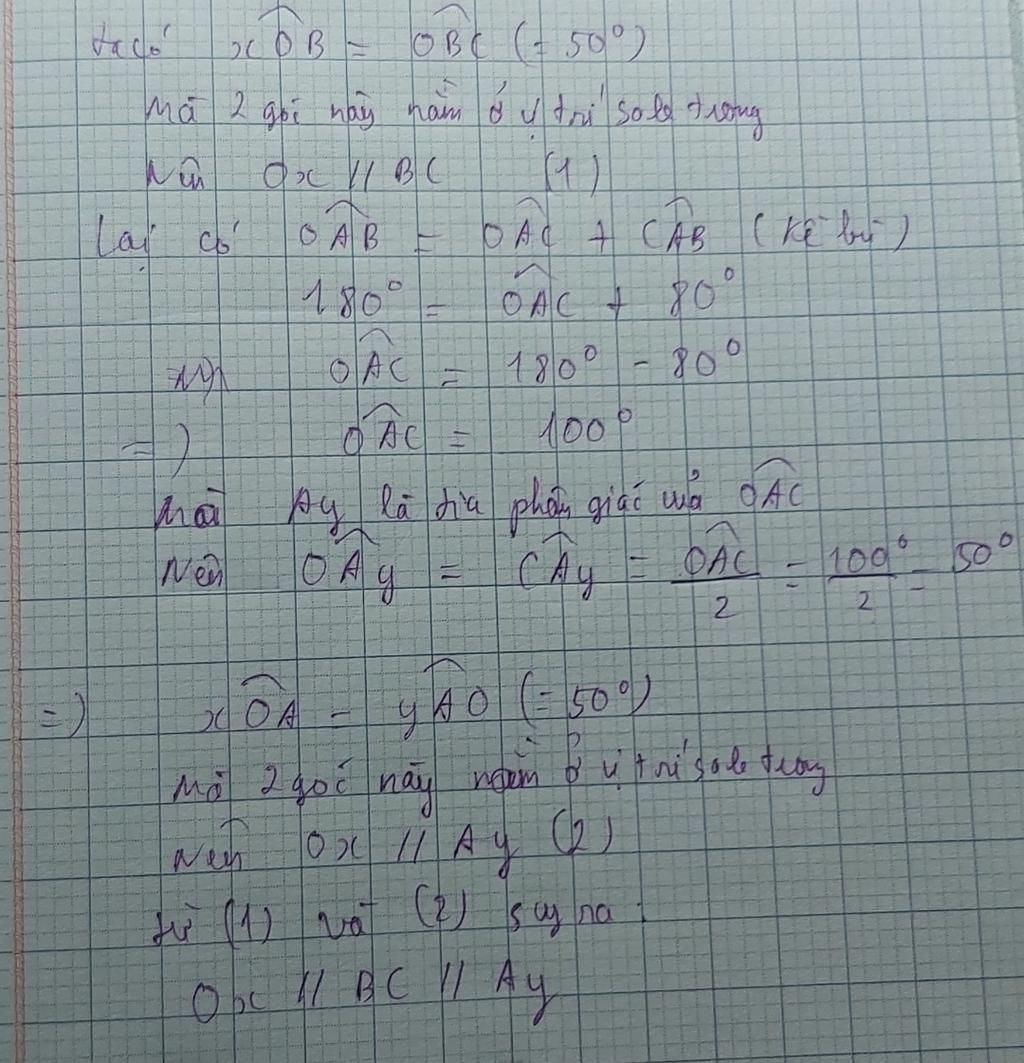 ta có xÔB = OBC (= 50°)
Mà 2 góc này nằm ở vị trí so le trong
Nên Ox // BC (1)
Lại có OÂB = OÂC + CÂB (kề bù)
180° = OÂC + 80°
OÂC = 180° - 80°
=) OÂC = 100°
Mà Ay là tia phân giác của OÂC
Nên OÂy = CÂy = OÂC/2 = 100°/2 = 50°
=) xÔA = yÂO (= 50°)
Mà 2 góc này nằm ở vị trí so le trong
Nên Ox // Ay (2)
từ (1) và (2) suy ra :
Ox // BC // Ay